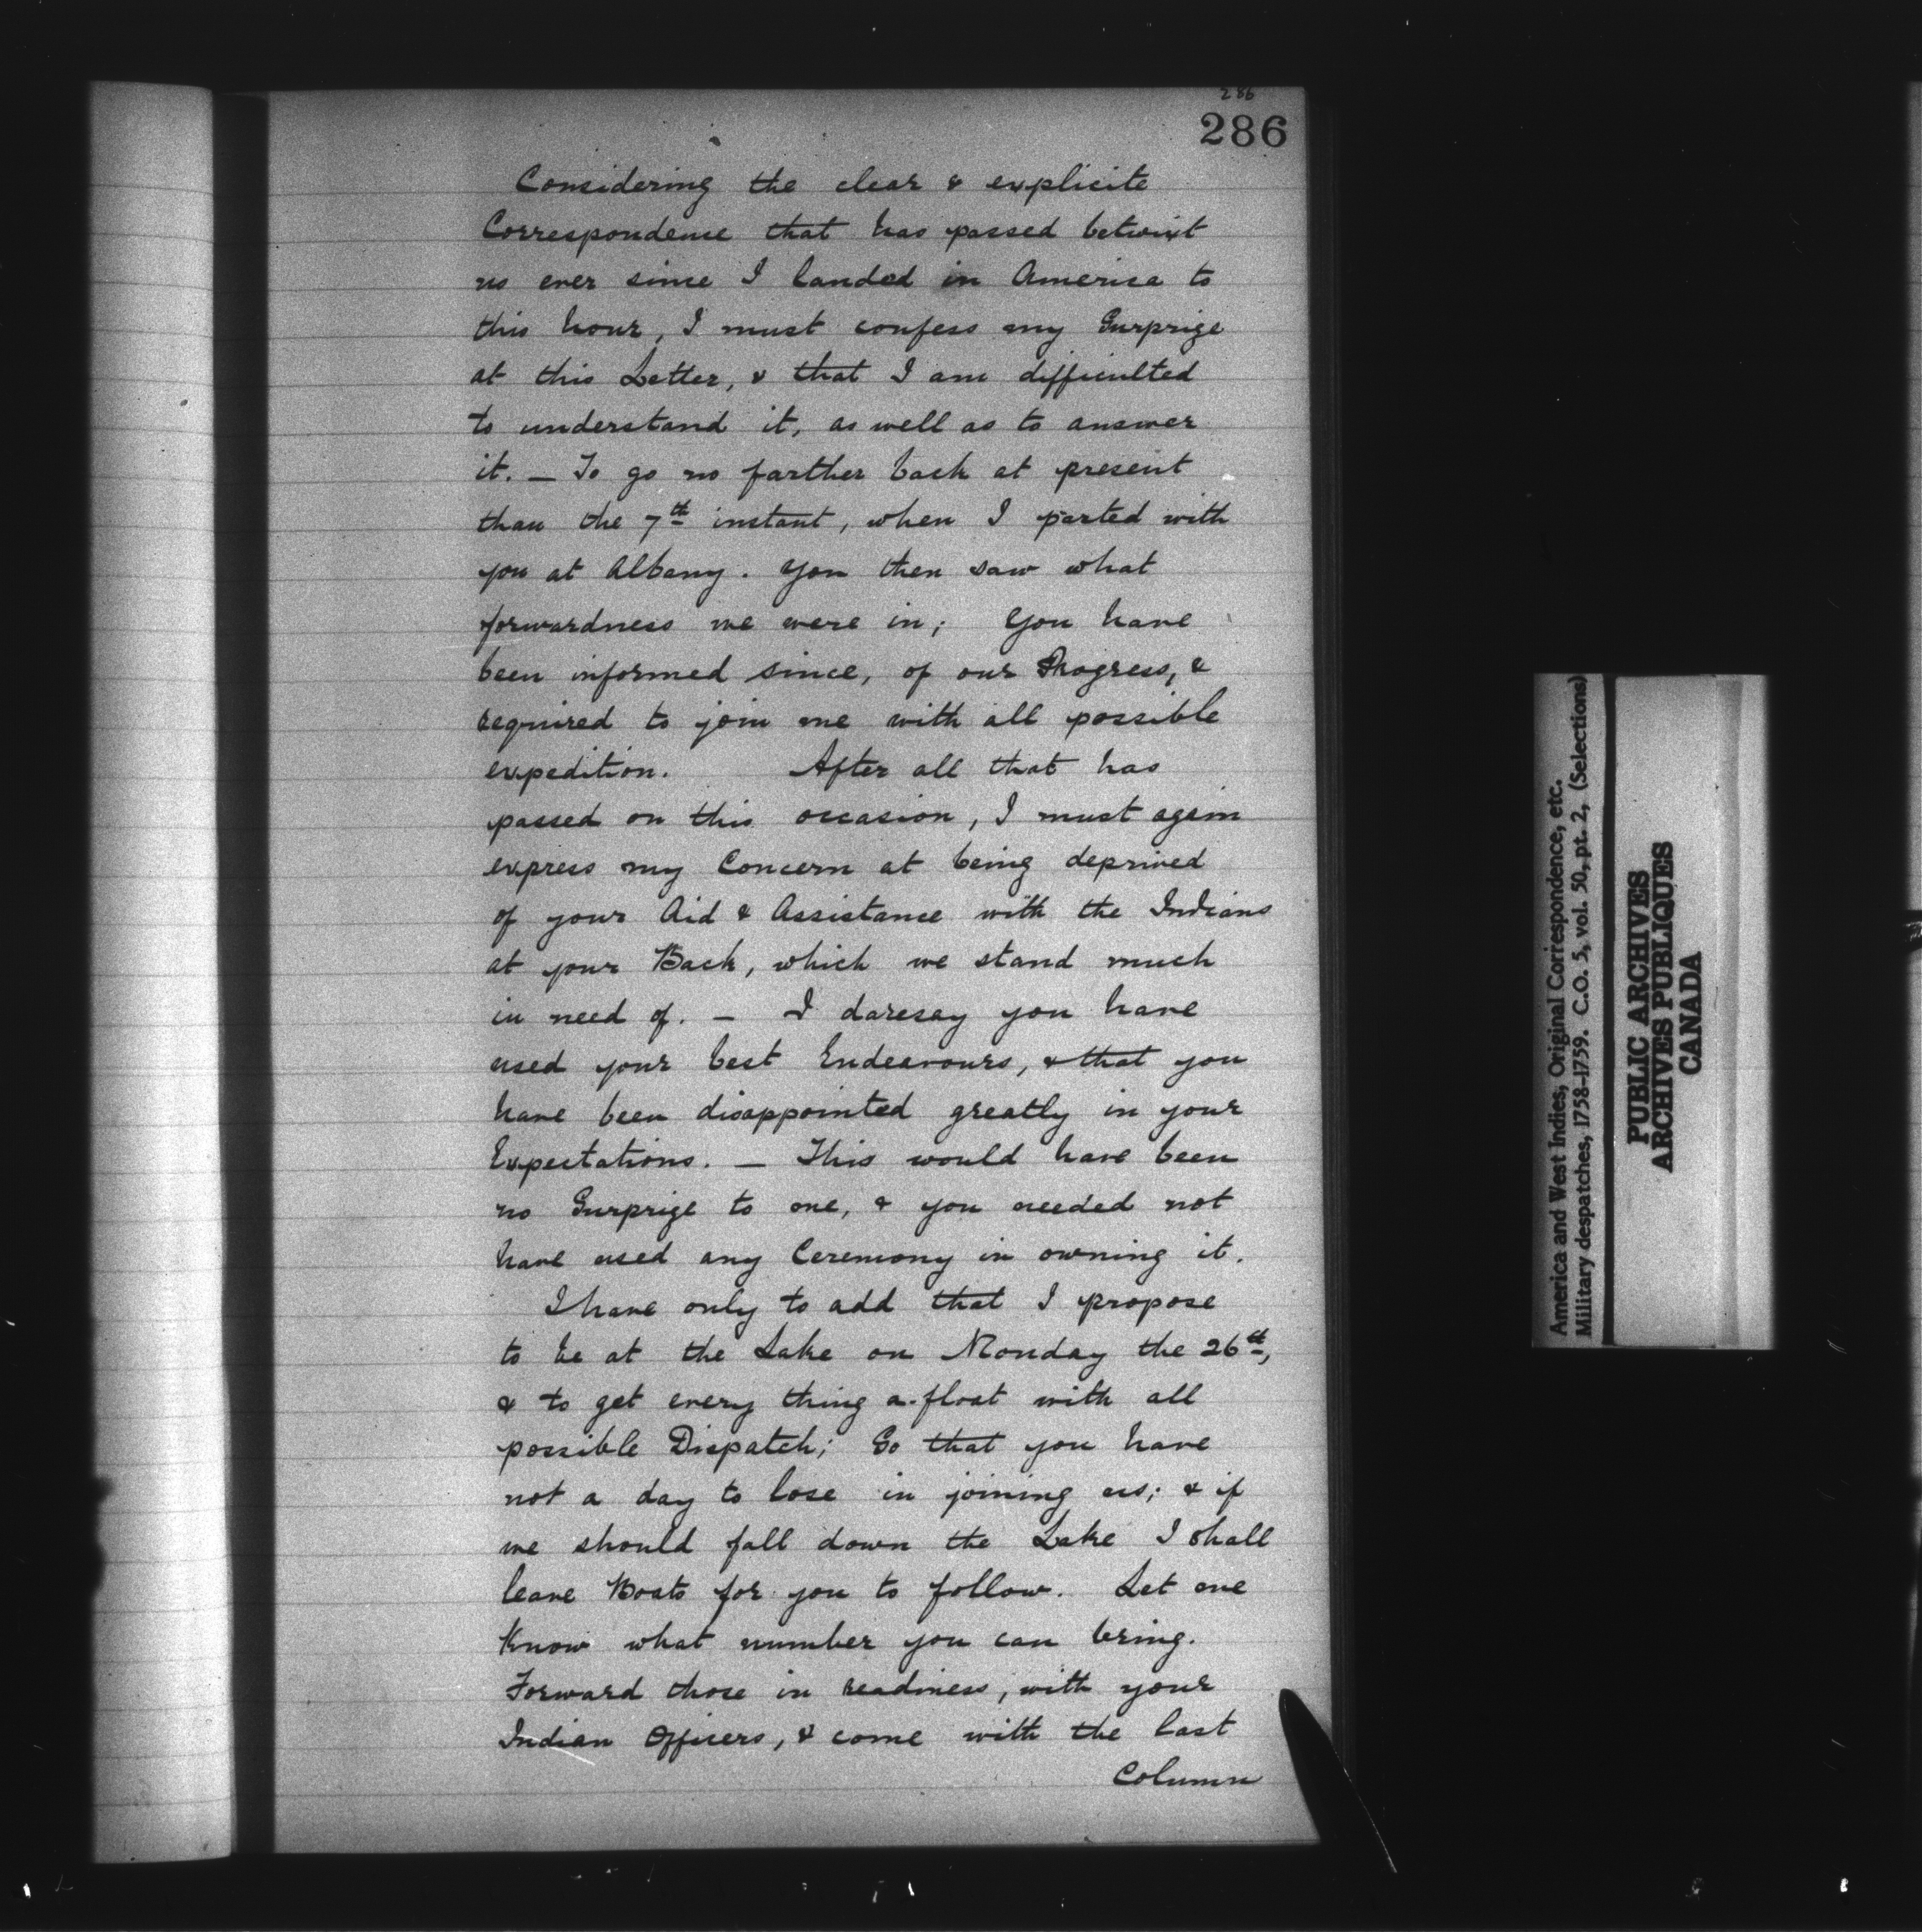 286
286
Considering the clear & explicite
Correspondence that has passed betwixt
us ever since I landed in America to
this hour, I must confess my Surprize
at this Letter, & that I am difficulted
to understand it, as well as to answer
it. — To go no farther back at present
than the 7th instant, when I parted with
you at Albany. You then saw what
forwardness we were in; You have
been informed since, of our Progress, &
required to join me with all possible
expedition. After all that has
passed on this occasion, I must again
express my Concern at being deprived
of your Aid & Assistance with the Indians
at your Back, which we stand much
in need of. — I daresay you have
used your best Endeavours, & that you
have been disappointed greatly in your
Expectations. — This would have been
no Surprize to me, & you needed not
have used any Ceremony in owning it.
I have only to add that I propose
to be at the Lake on Monday the 26th,
& to get every thing a-float with all
possible Dispatch; So that you have
not a day to lose in joining us; & if
we should fall down the Lake I shall
leave Boats for you to follow. Let me
know what number you can bring.
Forward those in readiness, with your
Indian Officers, & come with the last
Column
America and West Indies, Original Correspondence, etc.
Military despatches, 1758-1759. C.O. 5, vol. 50, pt. 2, (Selections)
PUBLIC ARCHIVES
ARCHIVES PUBLIQUES
CANADA